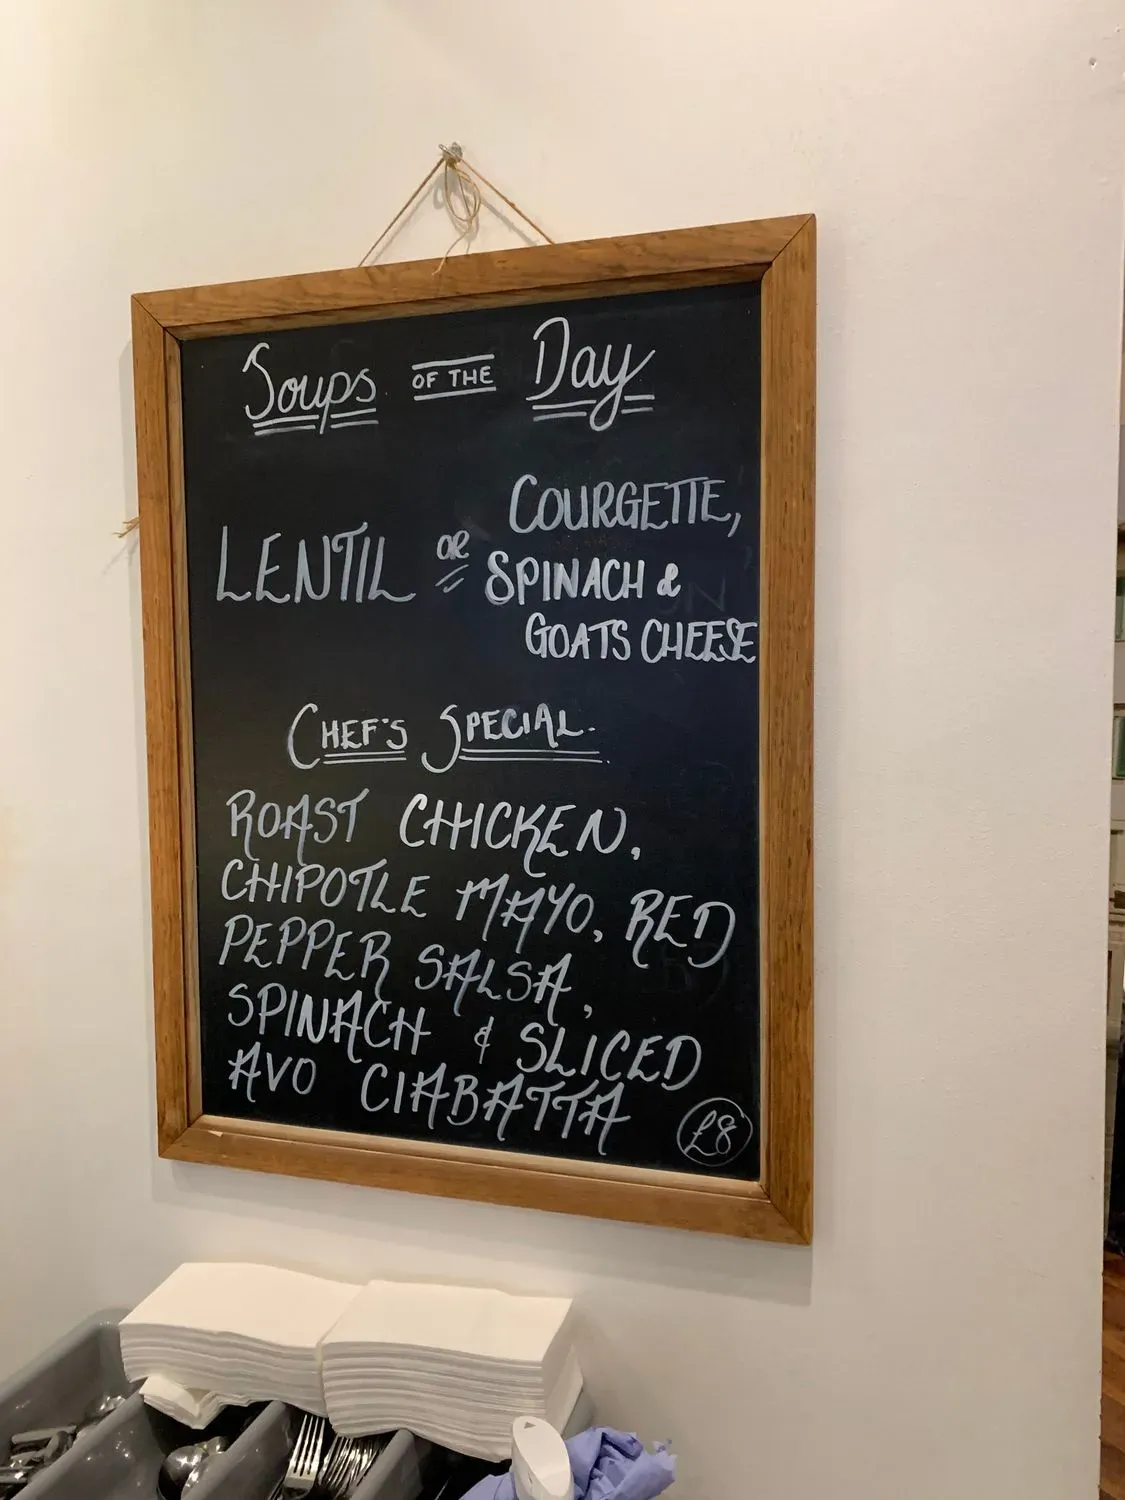 Soups OF THE Day
LENTIL OR COURGETTE,
SPINACH &
GOATS CHEESE
CHEF'S SPECIAL.
ROAST CHICKEN,
CHIPOTLE MAYO, RED
PEPPER SALSA,
SPINACH & SLICED
AVO CIABATTA
£8